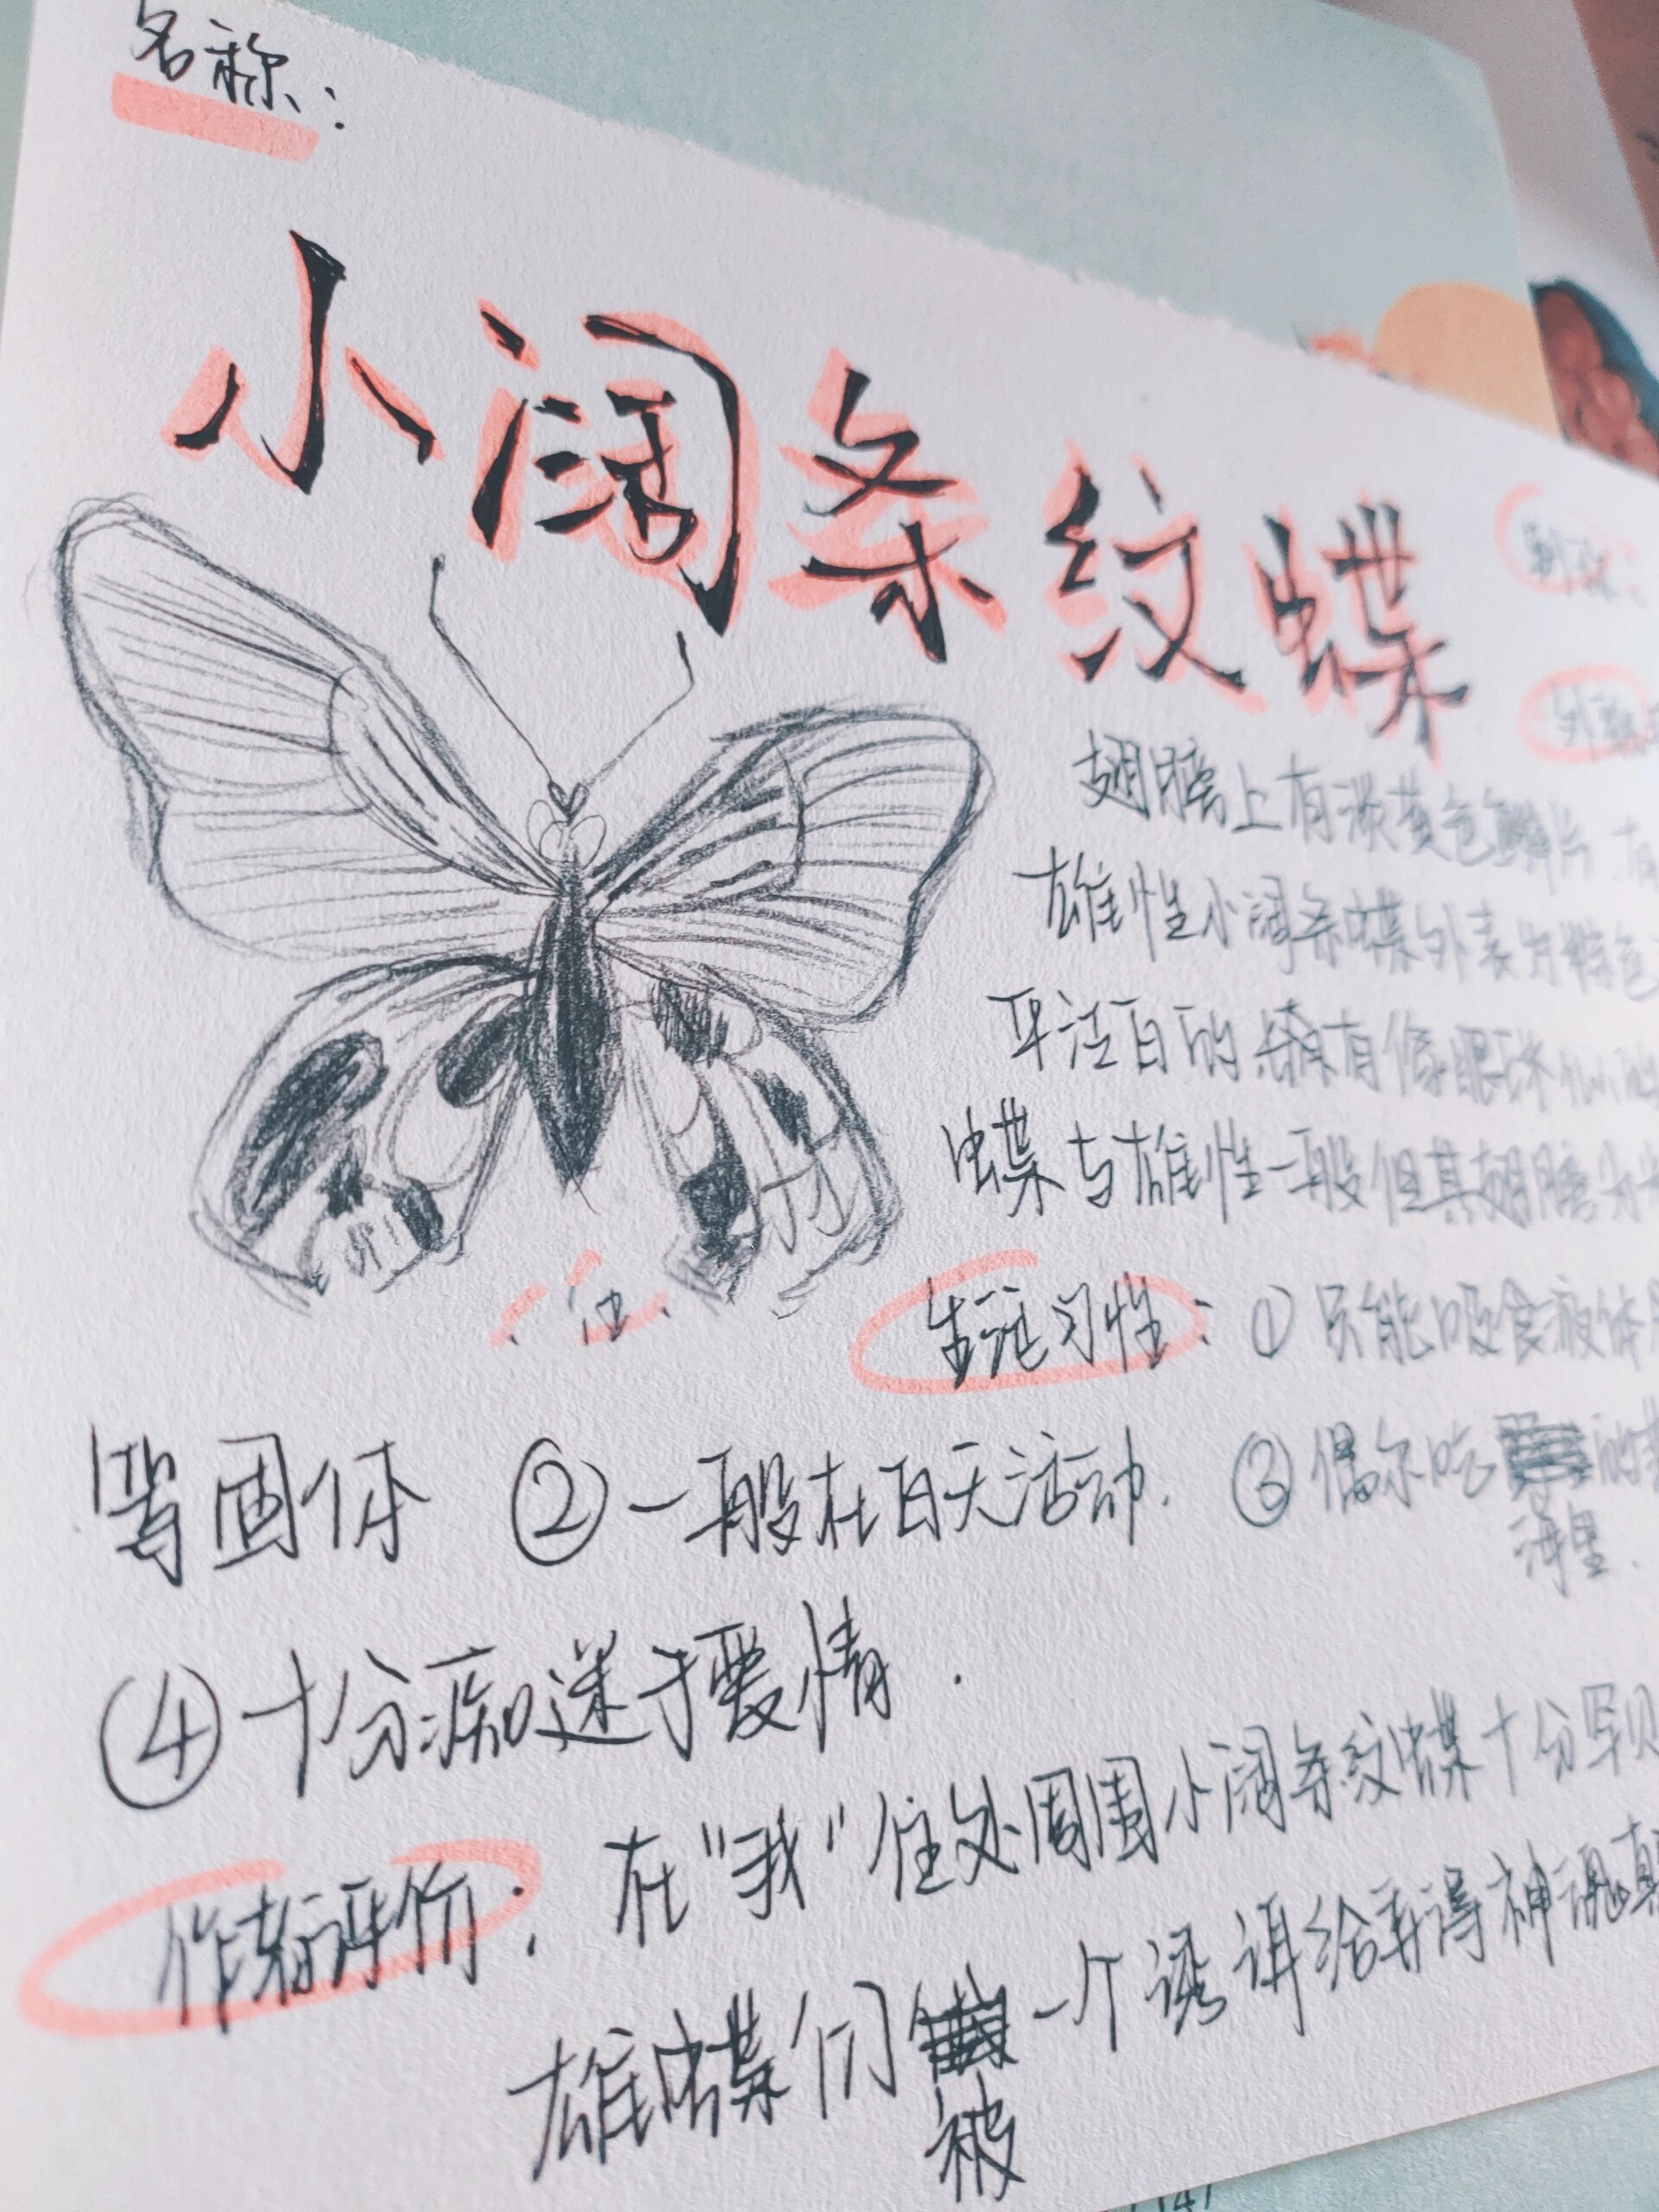 名称：
小阔条纹蝶
别称：
外貌
翅膀上有淡黄色鳞片.有
雄性小阔条蝶外表为棕色
平淡白的
蝶与雄性一般但其翅膀为
注
生活习性：①只能吸食液体
等固体 ②一般在白天活动. ③偶尔吃的
海里.
④十分痴迷于爱情.
作者评价：在“我”住处周围小阔条纹蝶十分罕见
雄蝶们被一个诱饵给弄得神魂